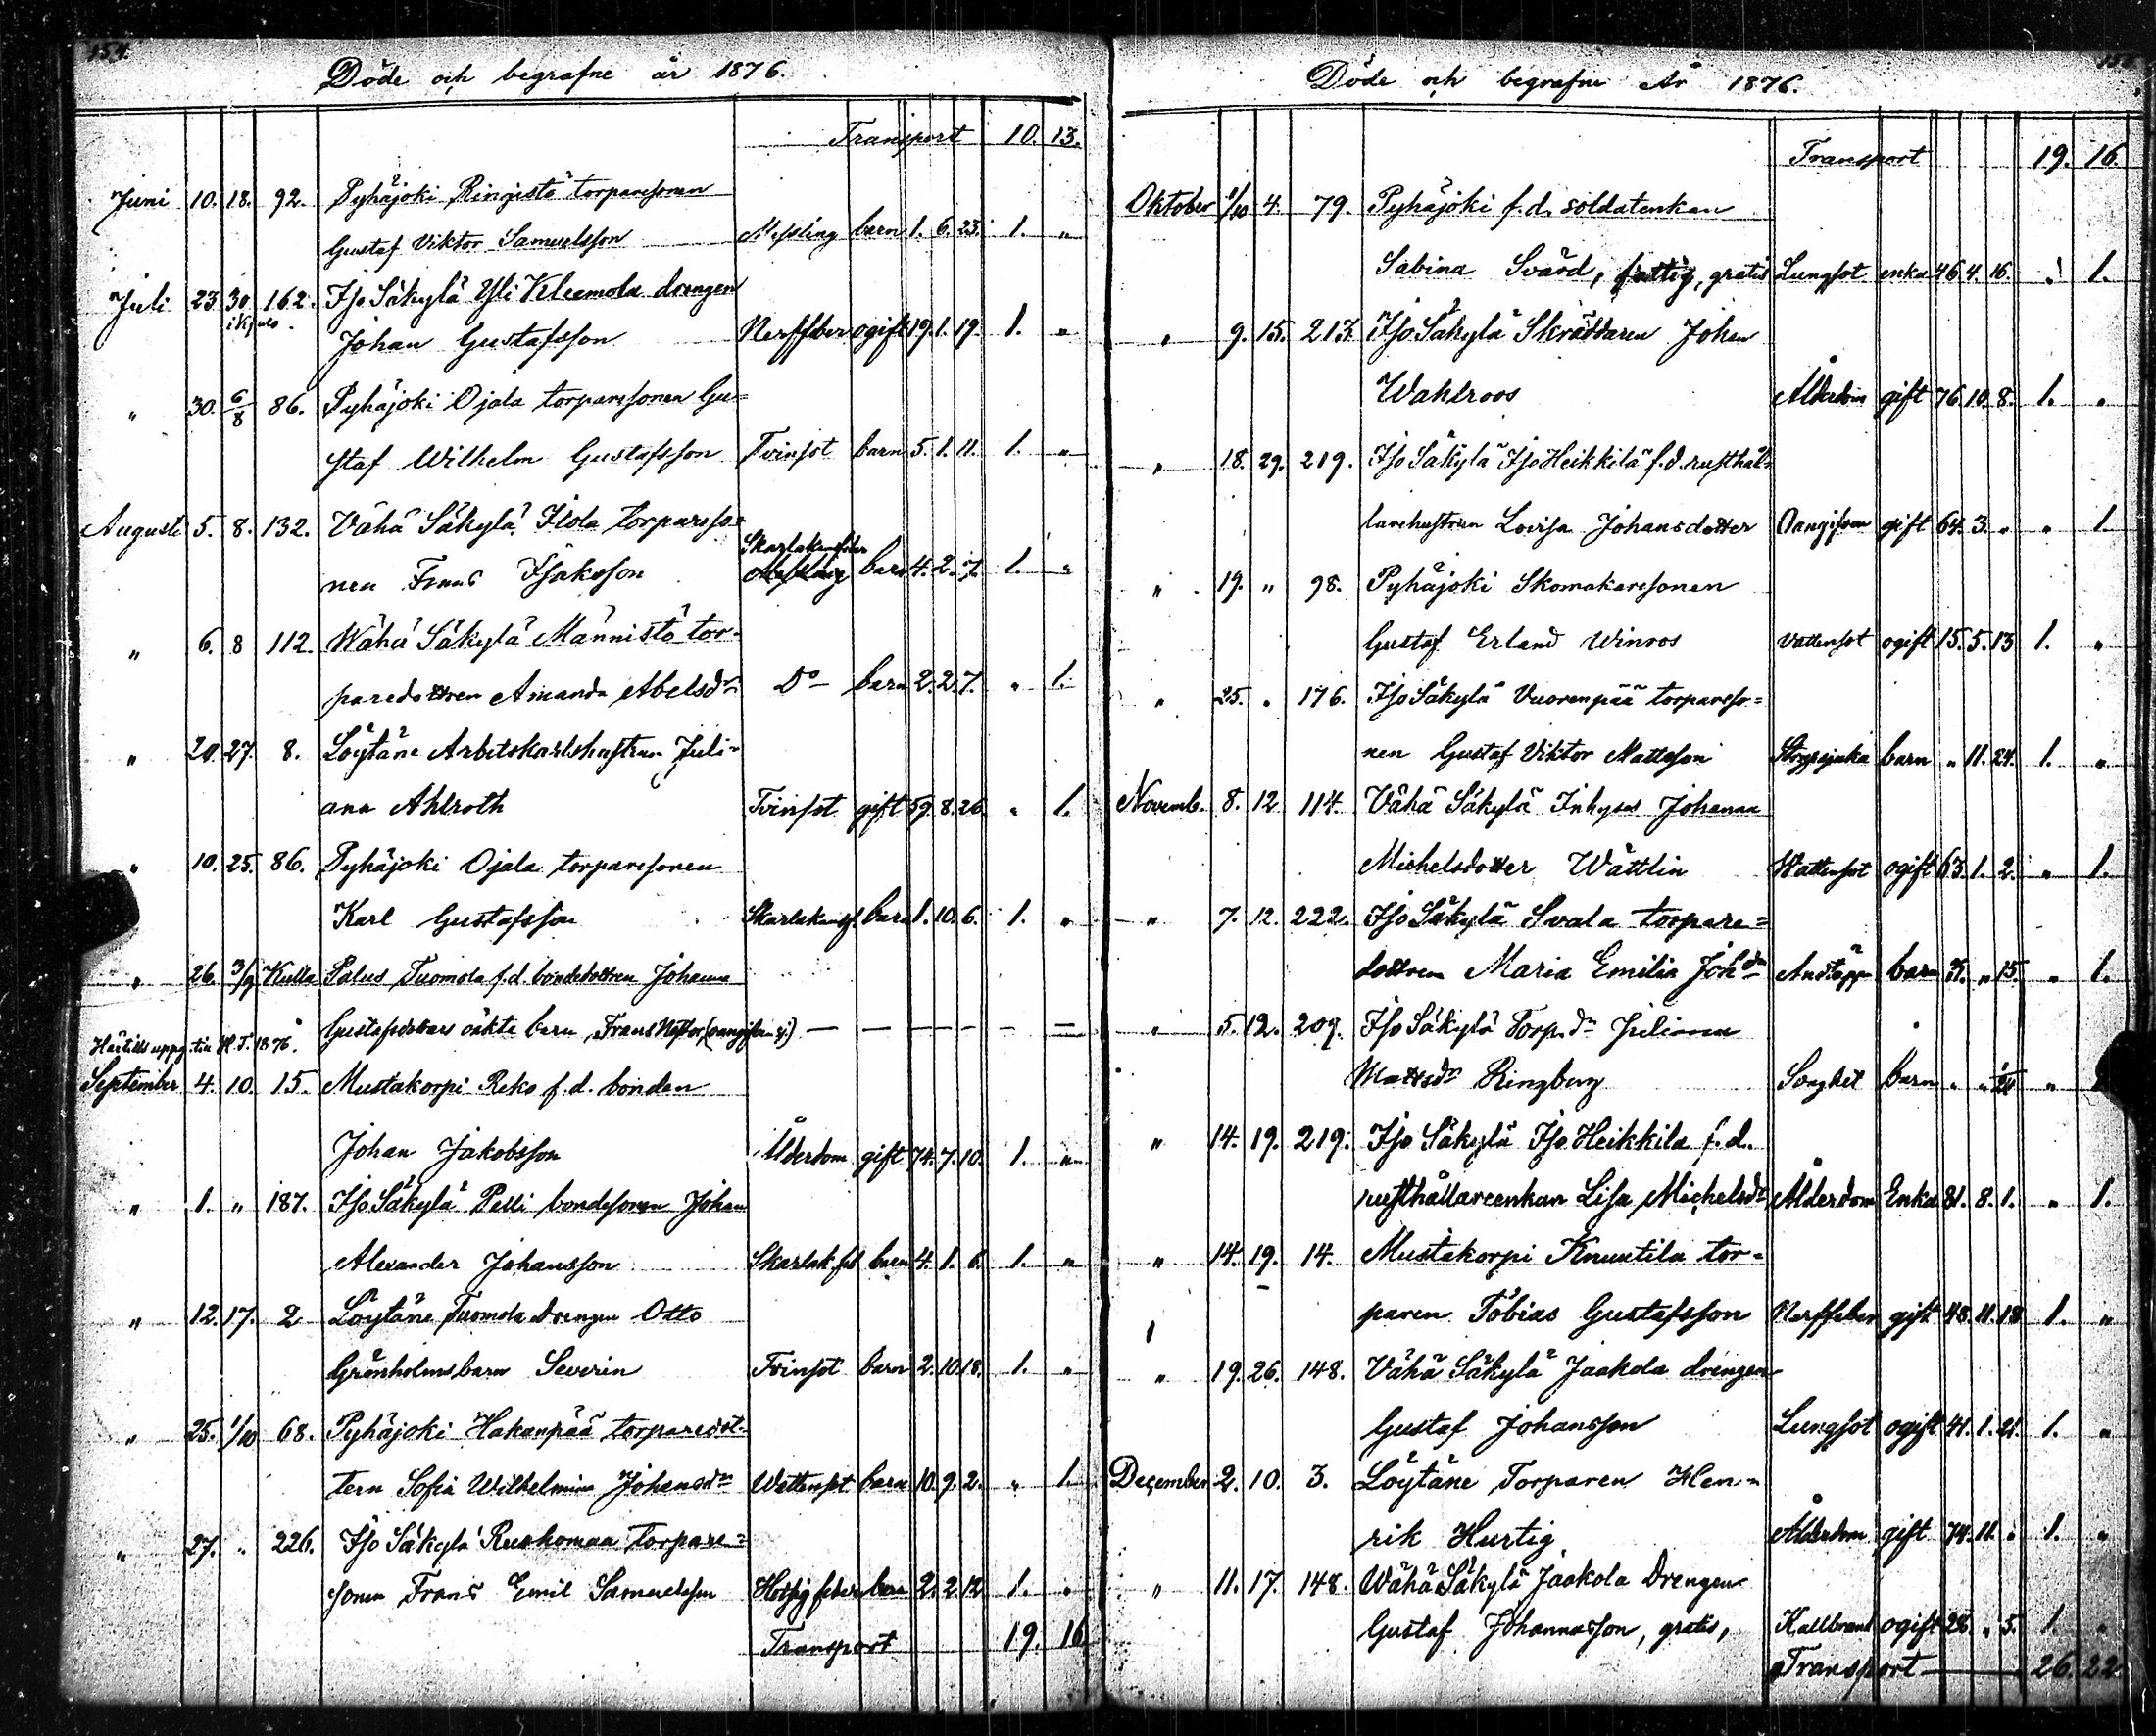 154.
Döde och begrafne år 1876.
Transport 10. 13.
Juni 10. 18. 92. Pyhäjoki Ringistö torparesonen
Gustaf Viktor Samuelsson Messling barn 1. 6. 23. 1. "
Juli 23 30. 162. Iso Säkylä Yli Kleemola drengen
Johan Gustafsson Nerffeber ogift 19. 1. 19. 1. "
" 30. 6/8 86. Pyhäjoki Ojala torparesonen Gu=
staf Wilhelm Gustafsson Tvinsot barn 5. 1. 11. 1. "
Augusti 5. 8. 132. Vähä Säkylä Isola torpareso=
Skarlakansfeber
nen Frans Isaksson barn 4. 2. 7. 1. "
" 6. 8 112. Wähä Säkylä Männistö tor-
paredottren Amanda Abelsdr Do barn 2. 2. 7. " 1.
" 20. 27. 8. Löytäne Arbetskarlshustrun Juli-
ana Ahlroth Tvinsot gift 59. 8. 26. " 1.
" 10. 25. 86. Pyhäjoki Ojala torparesonen
Karl Gustafsson Skarlakansf. barn 1. 10. 6. 1. "
" 26. 3/9 Kulla Palus Tuomola f.d. bondedottren Johanna
Gustafsdotters oäkta barn, Frans Nestor (oangifven sj.) — — — — — —
Härtills uppg. till H.T. 1876.
September 4. 10. 15. Mustakorpi Reko f.d. bonden
Johan Jakobsson Ålderdom gift 74. 7. 10. 1. "
" 1. " 187. Iso Säkylä Pelli bondesonen Johan
Alexander Johansson Skarlak.feb barn 4. 1. 6. 1. "
" 12. 17. 2 Löytäne Tuomola Drengen Otto
Grönholms barn Severin Tvinsot barn 2. 10. 18. 1. "
" 25. 1/10 68. Pyhäjoki Hakanpää torparedot-
tern Sofia Wilhelmina Johansdr Wattensot barn 10. 9. 2. " 1.
" 27. " 226. Iso Säkylä Ruskomaa torpare=
sonen Frans Emil Samuelsson Hetsig feber barn 2. 2. 12 1. "
Transport 19. 16
Döde och begrafne År 1876.
Transport 19. 16.
Oktober 1/10 4. 79. Pyhäjoki f.d. soldatenkan
Sabina Svärd, fattig, gratis Lungsot enka 46. 4. 16. " 1.
" 9. 15. 213. Iso Säkylä Skräddaren Johan
Wahlroos Ålderdom gift 76. 10. 8. 1. "
" 18. 29. 219. Iso Säkylä Iso Heikkilä f.d. rusthål-
larehustrun Lovisa Johansdotter Oangifven gift 64. 3. " " 1.
" 19. " 98. Pyhäjoki Skomakaresonen
Gustaf Erland Winroos Vattensot ogift 15. 5. 13 1. "
" 25. " 176. Iso Säkylä Vuorenpää torpareso=
nen Gustaf Viktor Mattsson Strypsjuka barn " 11. 24. 1. "
Novemb. 8. 12 114. Vähä Säkylä Inhyses Johanna
Michelsdotter Wättlin Wattensot ogift 63. 1. 2. " 1.
" 7. 12. 222. Iso Säkylä Svala torpare=
dottren Maria Emilia Johdr Andtäppa barn " 15. " 1.
" 5. 12. 209. Iso Säkylä Torp.dr Juliana
Mattsdr Ringberg Svaghet barn " "
" 14. 19. 219. Iso Säkylä Iso Heikkilä f.d.
rusthållareenkan Lisa Michelsdr Ålderdom Enka 81. 8. 1. " 1.
" 14. 19. 14. Mustakorpi Knuutila tor=
paren Tobias Gustafsson Nerffeber gift 48. 11. 18 1. "
" 19. 26. 148. Vähä Säkylä Jaakola drengen
Gustaf Johansson Lungsot ogift 41. 1. 21. 1. "
December 2. 10. 3. Löytäne Torparen Hen=
rik Hurtig. Ålderdom gift 74. 11. " 1. "
" 11. 17. 148. Wähä Säkylä Jaakola Drengen
Gustaf Johannasson, gratis, Kallbrand ogift 28. " 5. 1. "
Transport 26. 22